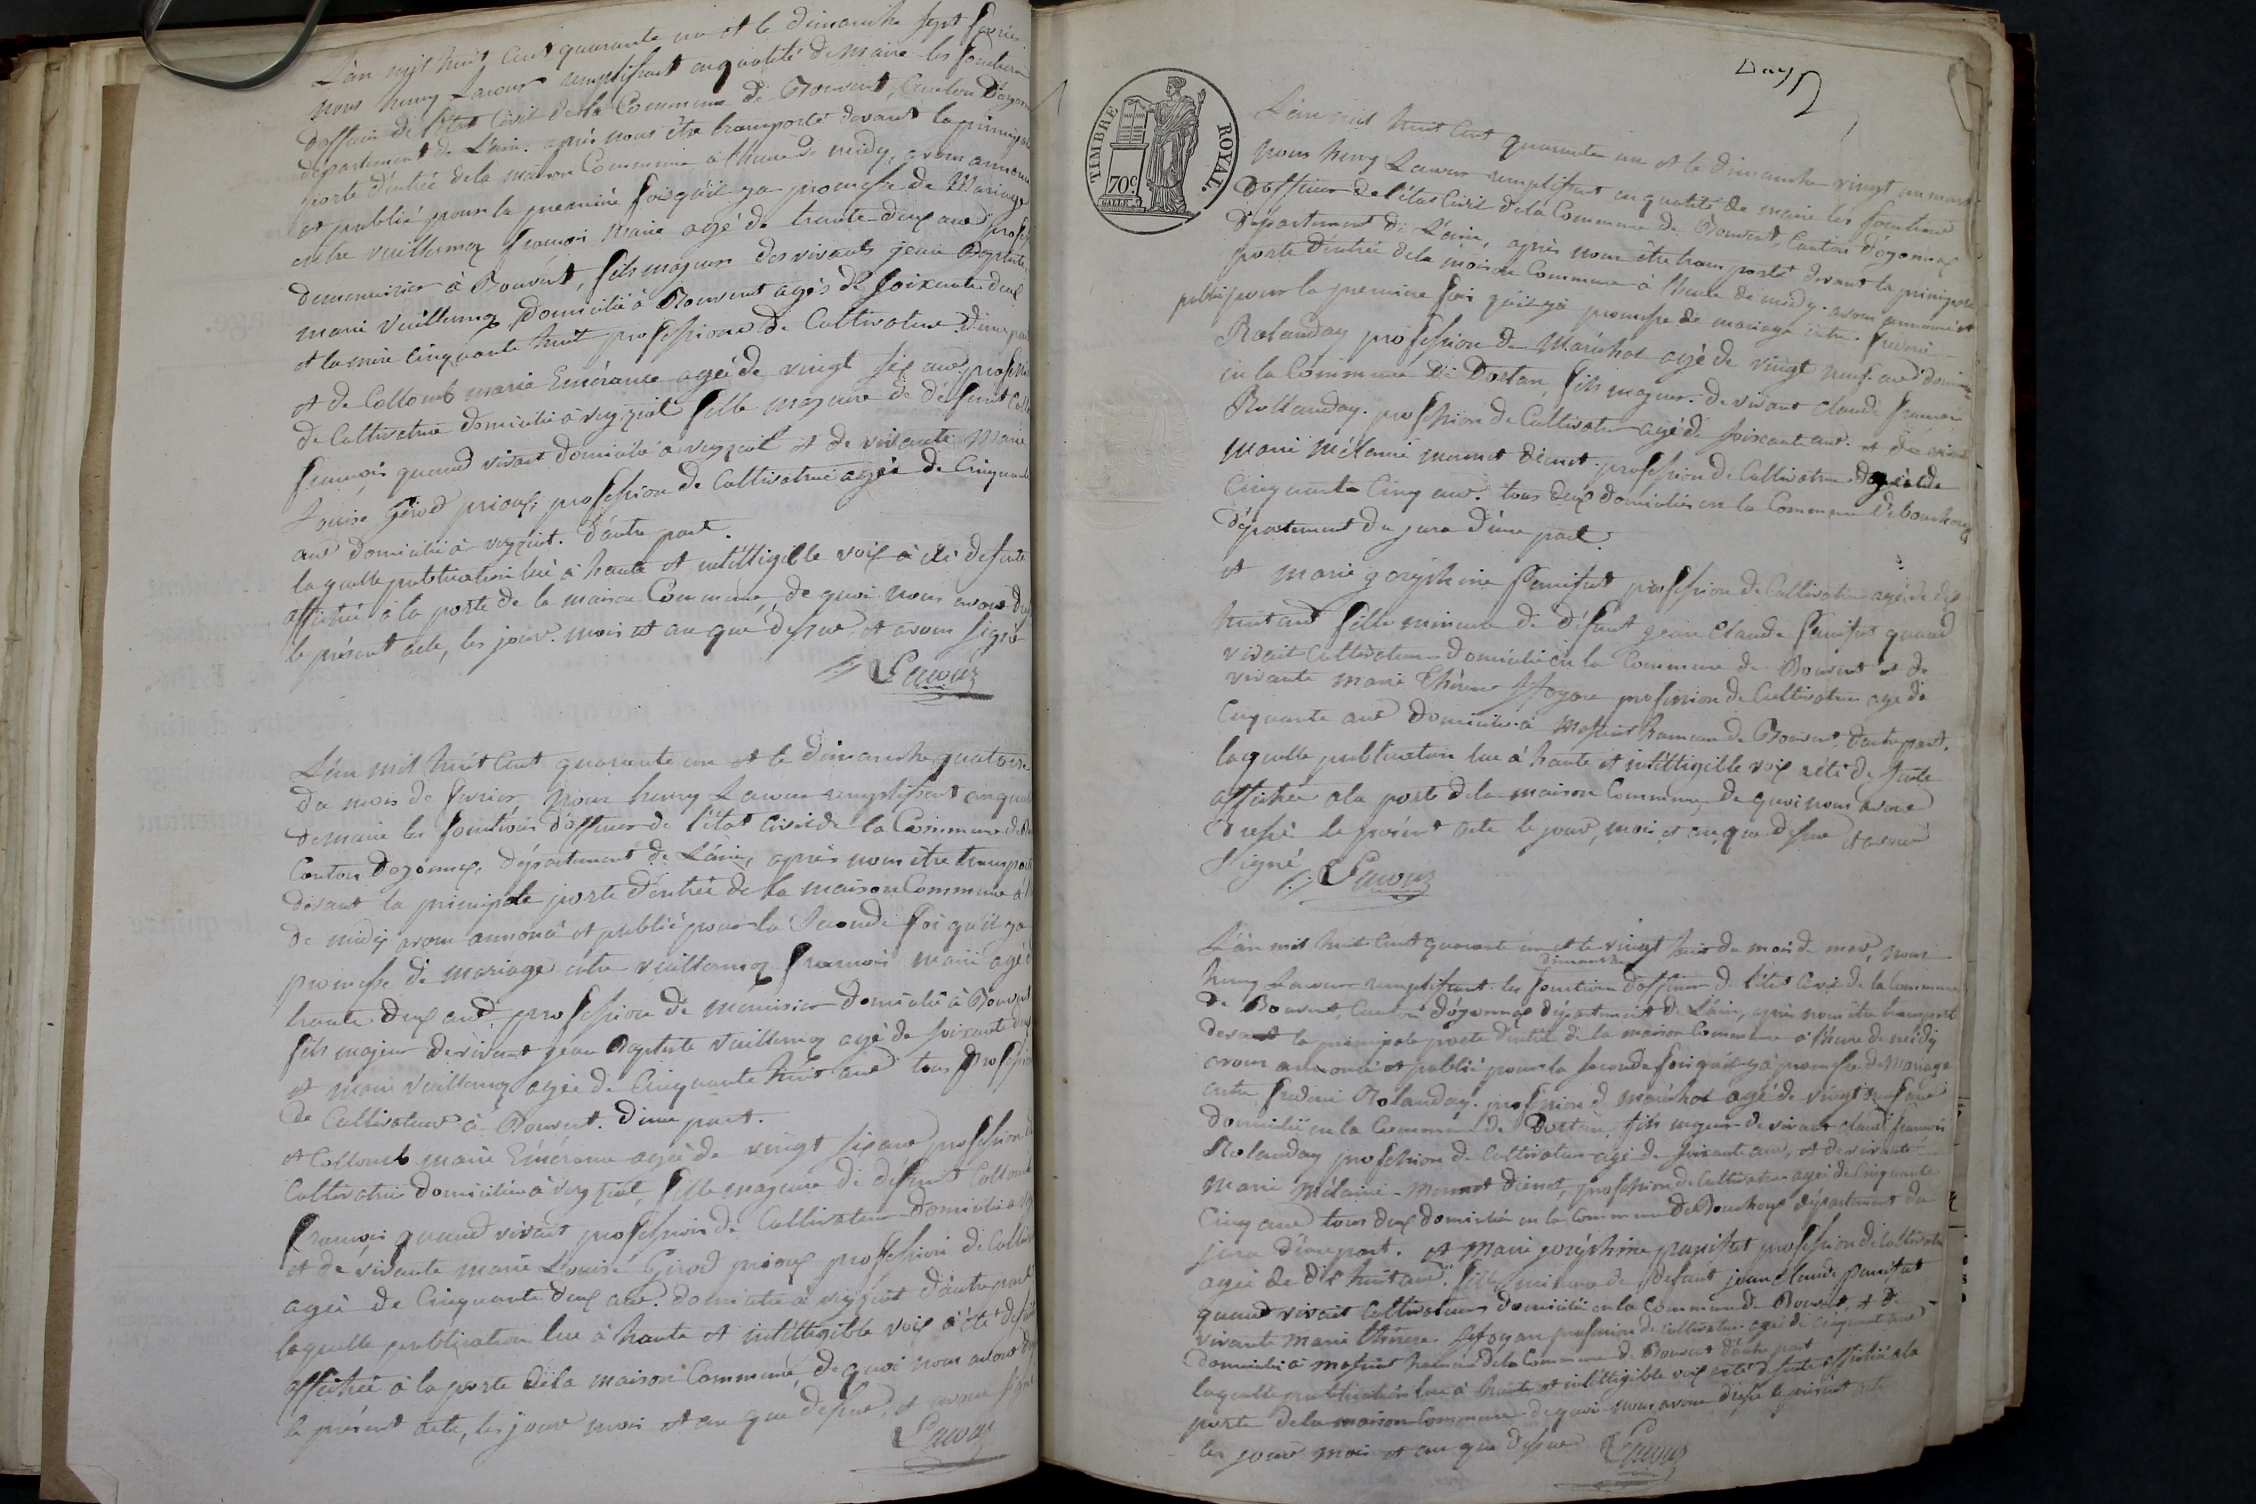 L'an mil huit Cent quarante un et le dimanche sept fevrier
nous henry Lacour remplissant en qualité de maire les fonctions
D'officier de l'état Civil de la Commune de Bouvent, Canton D'oyonnax
département de L'ain. après nous être transporté devant la principale
porte d'entrée de la maison Commune à l'heure de midy, avons annoncé
et publié pour la premiere fois qu'il y a promesse de Mariage
entre Vuillermoz françois marie agé de trente deux ans
de menuisier à Bouvent, fils majeur des vivants jean Baptiste
marie Vuillermoz domiciliés à Bouvent agés de soixante deux
et la mère Cinquante huit professions de Cultivateur D'une part
et de Collomb marie Emérance agée de vingt six ans, profession
de Cultivatrice domiciliée à veyziat fille majeure de défunt
françois quand vivait domicilié à veyziat et de vivante Marie
Louise Girod prioux, profession de Cultivatrice agée de Cinquante
ans domiciliée à veyziat. D'autre part.
laquelle publication lue à haute et intelligible voix à été de suite
affichée à la porte de la maison Commune, de quoi nous avons
le présent acte, les jour mois et an que dessus, et avons signé
Lacour
L'an mil huit Cent quarante un et le dimanche quatorze
du mois de fevrier nous henry Lacour remplissant en
de maire les fonctions d'officier de l'état Civil de la Commune de
Canton D'oyonnax, département de L'ain, après nous être
devant la principale porte d'entrée de la maison Commune à
de midy avons annoncé et publié pour la Seconde fois qu'il y a
promesse de mariage entre vuillermoz françois marie agé
trente deux ans profession de menuisier domicilié à Bouvent
fils majeur de vivant jean Baptiste Vuillermoz agé de soixante deux
et marie Vuillermoz agée de Cinquante huit ans tous
de Cultivateurs à Bouvent. D'une part.
et Collomb marie Emérance agée de vingt six ans profession
Cultivatrice domiciliée à veyziat, fille majeure de défunt Collomb
françois quand vivait profession de Cultivateur domicilié à
et de vivante marie Louise Girod prioux profession de
agée de Cinquante deux ans. domiciliée à veyziat d'autre part
laquelle publication lue à haute et intelligible voix a été de
affichée à la porte de la maison Commune, de quoi nous avons
le présent acte, les jour mois et an que dessus, et avons signé
Lacour
TIMBRE ROYAL.
70c.
L'an mil huit Cent quarante un et le dimanche vingt un mars
nous henry Lacour remplissant en qualité de maire les fonctions
D'officier de l'état Civil de la Commune de Bouvent, Canton d'oyonnax
Département de L'ain, après nous être transporté devant la principale
porte d'entrée de la maison Commune à l'heure de midy. avons annoncé et
publié pour la premiere fois qu'il y a promesse de mariage entre
Rolanday profession de Maréchal agé de vingt neuf ans
en la Commune De Dortan, fils majeur de vivant claude françois
Rollanday. profession de Cultivateur agé de soixante ans. et de
marie mélanie monnet profession de Cultivatrice agée de
Cinquante Cinq ans. tous deux domiciliés en la Commune de bouchoux
Département du jura D'une part.
et marie joséphine profession de Cultivatrice agée de dix
huit ans fille mineure de défunt jean Claude quand
vivait Cultivateur domicilié en la Commune de Bouvent et de
vivante marie thérese profession de Cultivatrice agé de
Cinquante ans domiciliée à hameau de Bouvent. D'autre part.
laquelle publication lue à haute et intelligible voix a été de suite
affichée à la porte de la maison Commune, de quoi nous avons
Dressé le présent acte le jour, mois et an que dessus et avons
Signé
Lacour
L'an mil huit Cent quarante un et le vingt huit du mois de mars, nous
dimanche
henry Lacour remplissant les fonctions d'officier de l'état Civil de la Commune
de Bouvent, Canton d'oyonnax département de L'ain, après nous être transporté
devant la principale porte d'entrée de la maison Commune à l'heure de midy
avons annoncé et publié pour la seconde fois qu'il y a promesse de Mariage
entre Rolanday. profession de maréchal agé de vingt neuf ans
domicilié en la Commune de Dortan, fils majeur de vivant claude françois
Rolanday profession de Cultivateur agé de soixante ans, et de vivante
Marie Mélanie Monnet profession de Cultivatrice agée de Cinquante
Cinq ans tous deux domiciliés en la Commune de Bouchoux département du
jura D'une part. et Marie joséphine profession de Cultivatrice
agée de dix huit ans. fille mineure de défunt jean Claude
quand vivait Cultivateur domicilié en la Commune de Bouvent, et de
vivante Marie thérese profession de Cultivatrice agée de cinquante ans
domiciliée à hameau de la Commune de Bouvent d'autre part
laquelle publication lue à haute et intelligible voix a été de suite affichée à la
porte de la maison Commune de quoi nous avons dressé le présent acte
les jour mois et an que dessus
Lacour